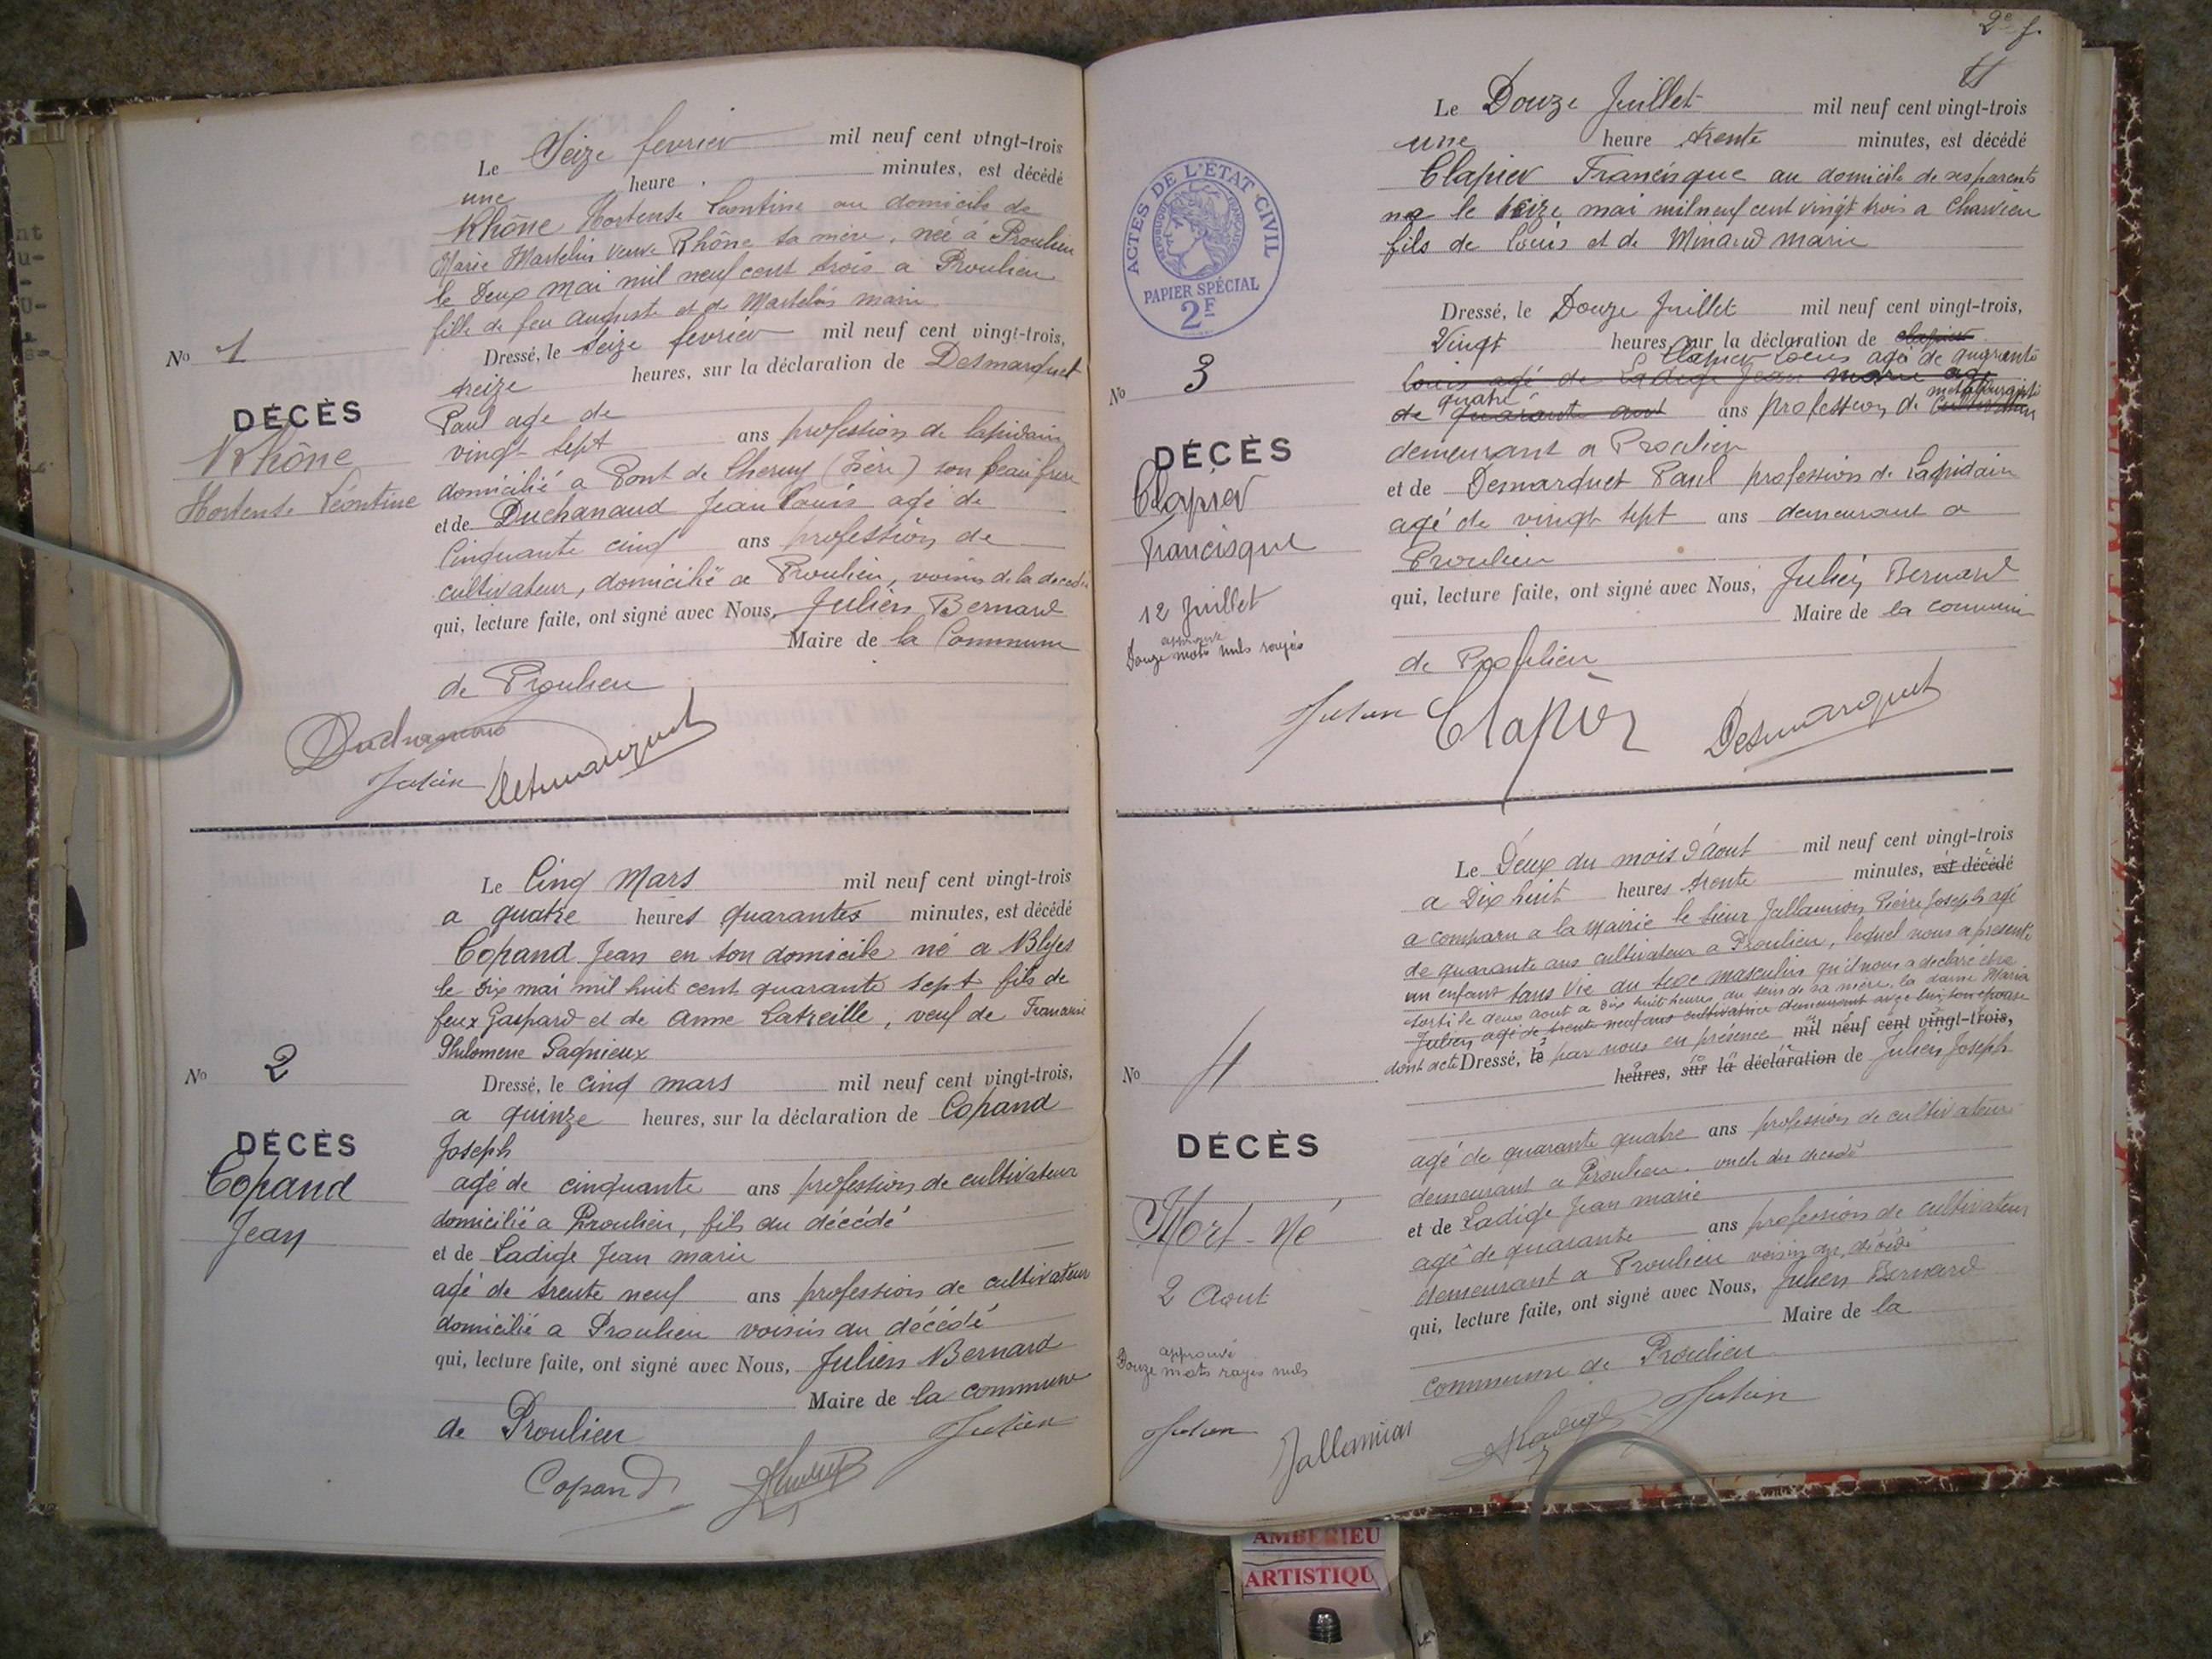 Le Seize fevrier mil neuf cent vingt-trois
une heure minutes, est décédé
Rhône Hortense Leontine au domicile de
Marie Martelin veuve Rhône sa mère, née à Proulieu
le Deux mai mil neuf cent trois a Proulieu
fille de feu Auguste et de Martelin marie
No 1
Dressé, le Seize fevrier mil neuf cent vingt-trois,
treize heures, sur la déclaration de Desmarquet
Paul age de
vingt-sept ans profession de lapidaire
domicilié a Pont de Cheruy (Isère) son beau frere
et de Duchanaud Jean Louis agé de
Cinquante cinq ans profession de
cultivateur, domicilié a Proulieu, voisin de la decedée
qui, lecture faite, ont signé avec Nous, Julien Bernard
Maire de la Commune
de Proulieu
DÉCÈS
Rhône
Hortense Léontine
Julien Desmarquet
Le Cinq Mars mil neuf cent vingt-trois
a quatre heures quarantes minutes, est décédé
Copand Jean en son domicile né a Blyes
le dix mai mil huit cent quarante sept fils de
feux Gaspard et de Anne Latreille, veuf de
Philomene Pagnieux
No 2
Dressé, le cinq mars mil neuf cent vingt-trois,
a quinze heures, sur la déclaration de Copand
Joseph
agé de cinquante ans profession de cultivateur
domicilié a Proulieu, fils du décédé
et de Ladige Jean marie
agé de trente neuf ans profession de cultivateur
domicilié a Proulieu voisin du décédé
qui, lecture faite, ont signé avec Nous, Julien Bernard
Maire de la commune
de Proulieu
DÉCÈS
Copand
Jean
Julien
Copand
2e f.
Le Douze Juillet mil neuf cent vingt-trois
une heure trente minutes, est décédé
Clapier Francisque au domicile de ses parents
né le seize mai mil neuf cent vingt trois a Charvieu
fils de Louis et de Minard marie
ACTES DE L'ETAT CIVIL
REPUBLIQUE FRANÇAISE
PAPIER SPÉCIAL
2F
No 3
Dressé, le Douze Juillet mil neuf cent vingt-trois,
Vingt heures, sur la déclaration de clapier
Clapier Louis agé de quarante
Louis agé de Ladige Jean marie age
quatre metallurgiste
de quarante ans ans profession de cultivateur
demeurant a Proulieu
et de Desmarquet Paul profession de Lapidaire
agé de vingt sept ans demeurant a
Proulieu
qui, lecture faite, ont signé avec Nous, Julien Bernard
Maire de la commune
de Proulieu
DÉCÈS
Clapier
Francisque
12 Juillet
approuvé
Douze mots nuls rayés
Julien Clapier Desmarquet
Le Deux du mois d'aout mil neuf cent vingt-trois
a Dix huit heures trente minutes, est décédé
a comparu a la mairie le sieur Jallamion Pierre Joseph agé
de quarante ans cultivateur a Proulieu, lequel nous a presenté
un enfant sans vie du sexe masculin qu'il nous a declaré être
sorti le deux aout a dix huit heures, du sein de sa mère, la dame Maria
Julien agé de trente neuf ans cultivatrice demeurant avec lui, son epouse
dont acte Dressé, le par nous en présence mil neuf cent vingt-trois,
heures, sur la déclaration de Julien Joseph
No 4
agé de quarante quatre ans profession de cultivateur
demeurant a Proulieu. oncle du decedé
et de Ladige Jean marie
agé de quarante ans profession de cultivateur
demeurant a Proulieu voisin du décédé
qui, lecture faite, ont signé avec Nous, Julien Bernard
Maire de la
commune de Proulieu
DÉCÈS
Mort-Né
2 Aout
approuvé
Douze mots rayés nuls
Julien Jallamion Ladige Julien
AMBERIEU
ARTISTIQU